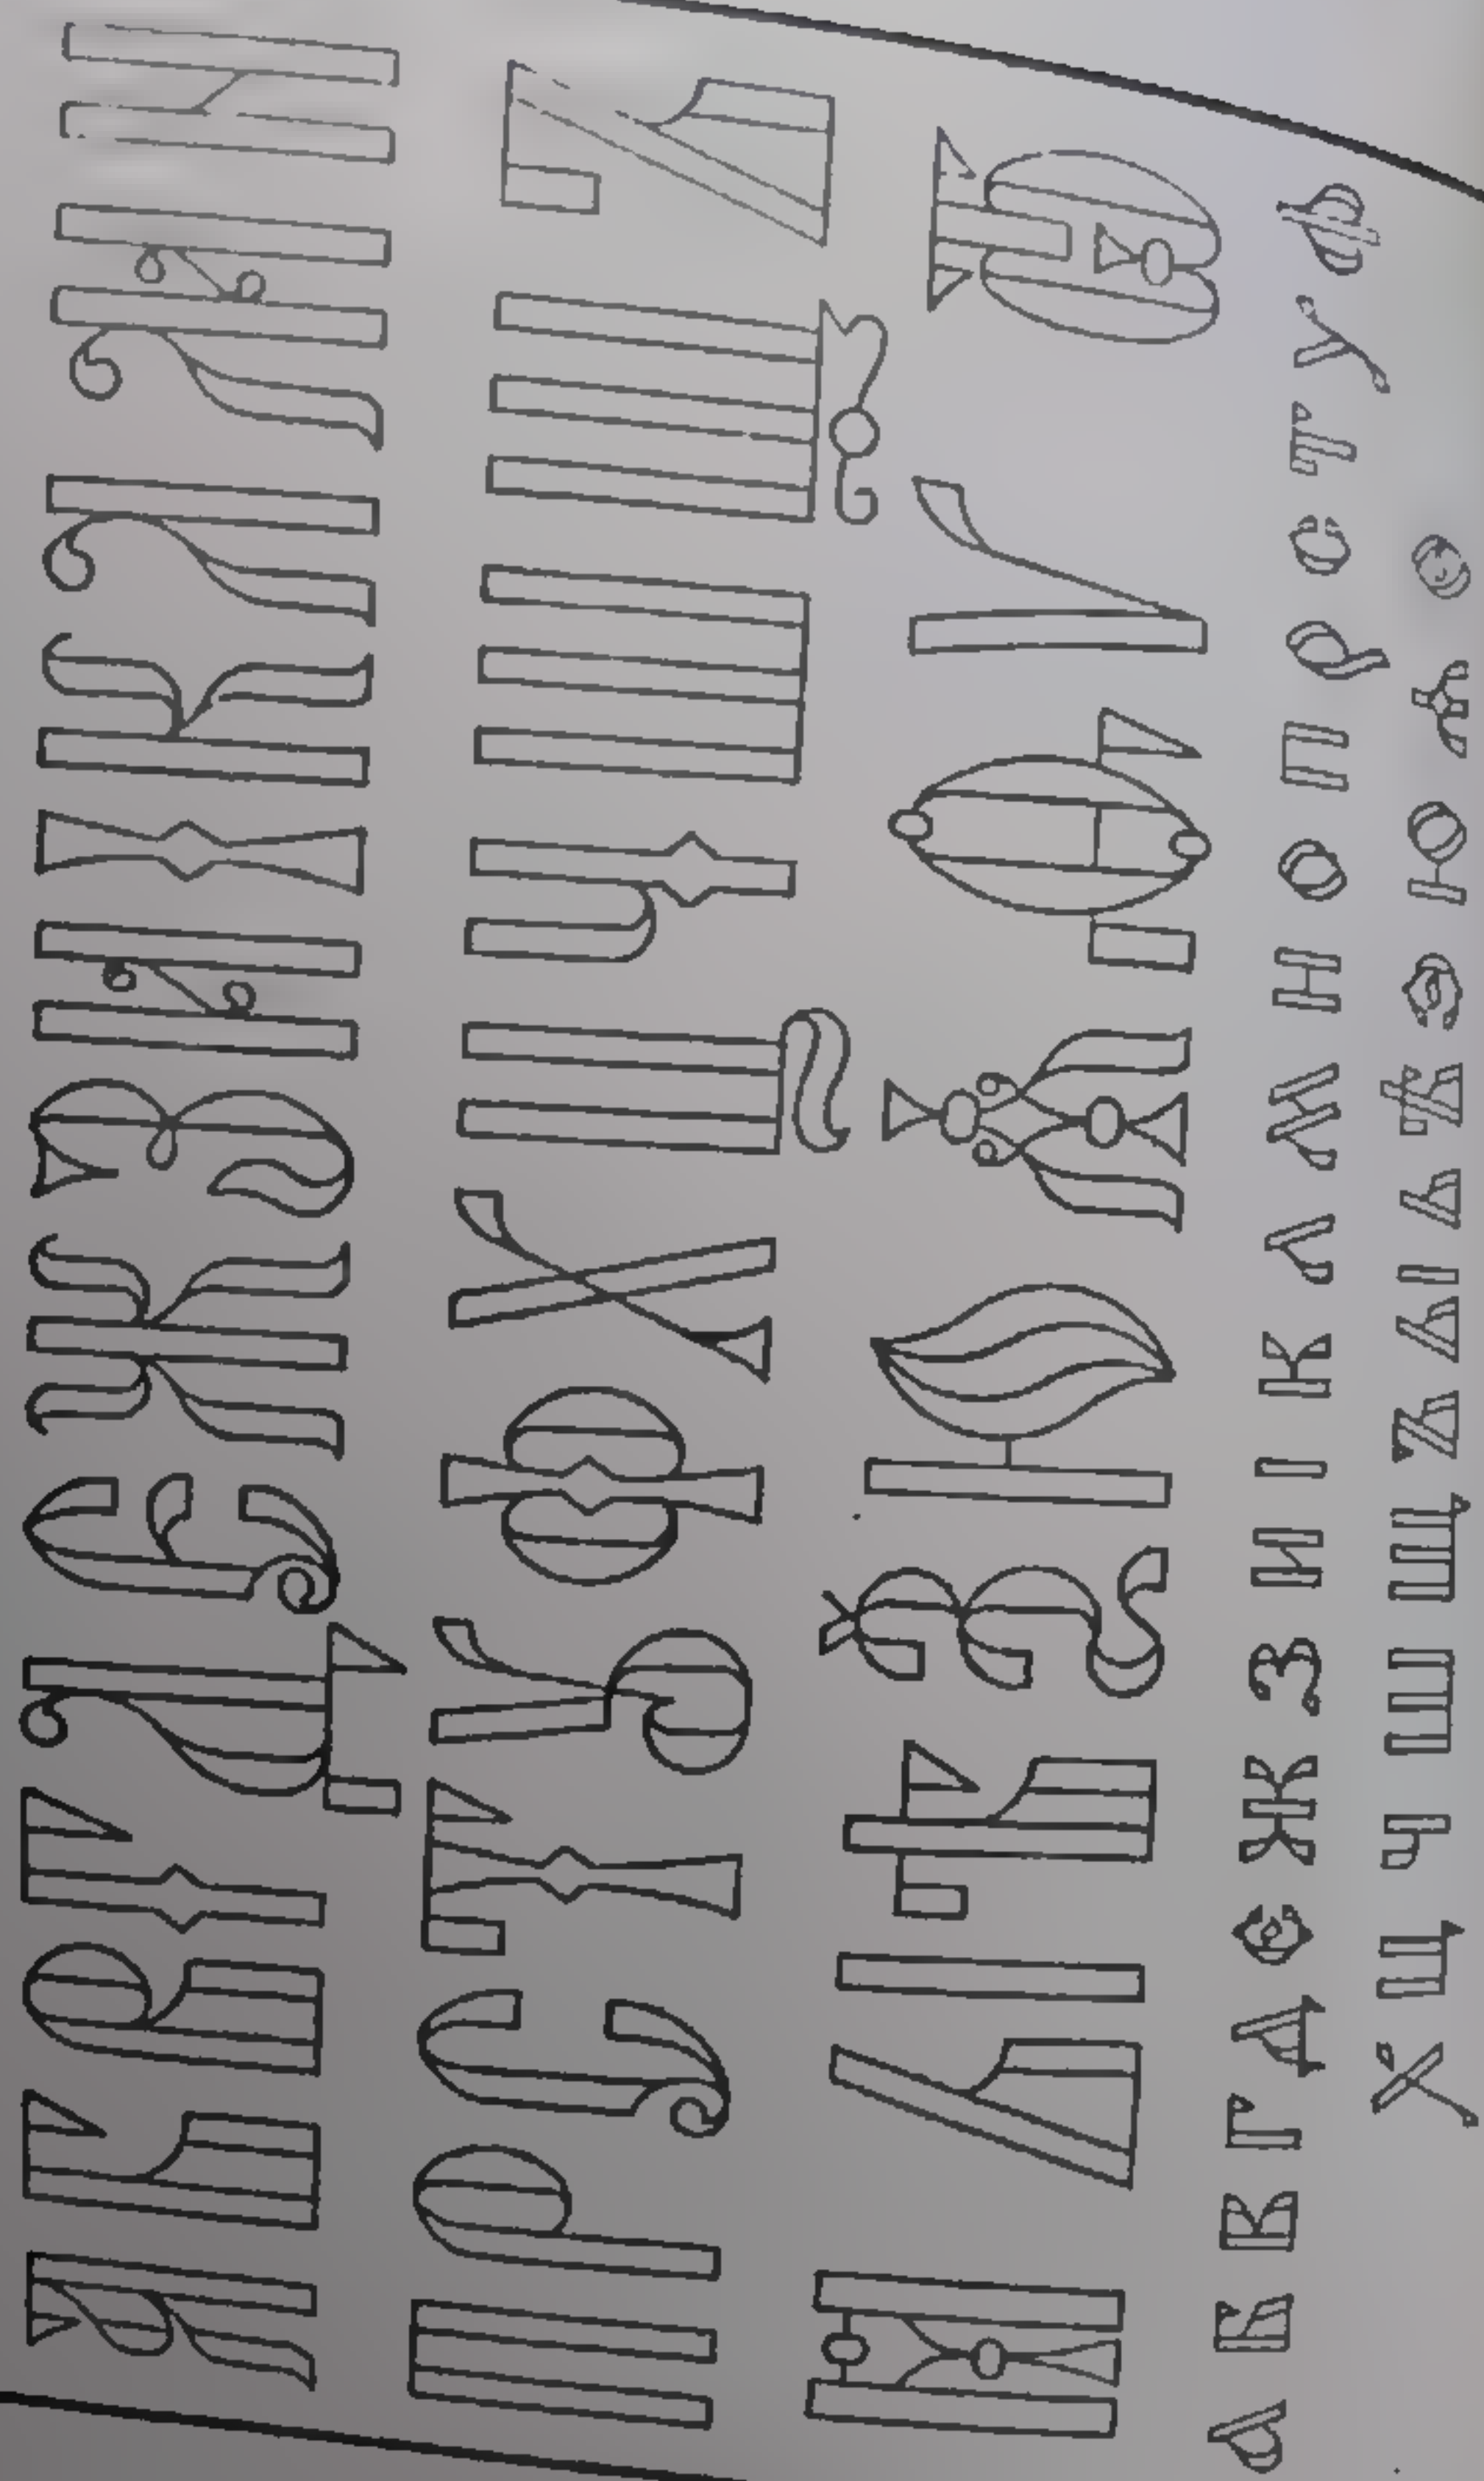 А Б В Г Д Е Ж З И І К Л М Н
П Р С Т У Ф Х Ц Ч Ш Щ Ъ
Ь І Ѣ Ѯ Ю Ѫ Ѳ Ѵ Ѿ
А Б В Г Д Е Ж З И І К Л М Н О П Р С Т У Ф
Х Ц Ч Ш Щ Ъ Ы Ь Ѣ Э Ю Ѧ Ѳ